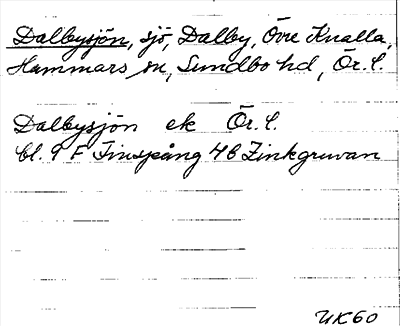 Dalbysjön, sjö, Dalby, Övre Knalla,
Hammars sn, Sundbo hd, Ör. l.
Dalbysjön ek Ör. l.
bl. 9 F Finspång 4b Zinkgruvan
UK60